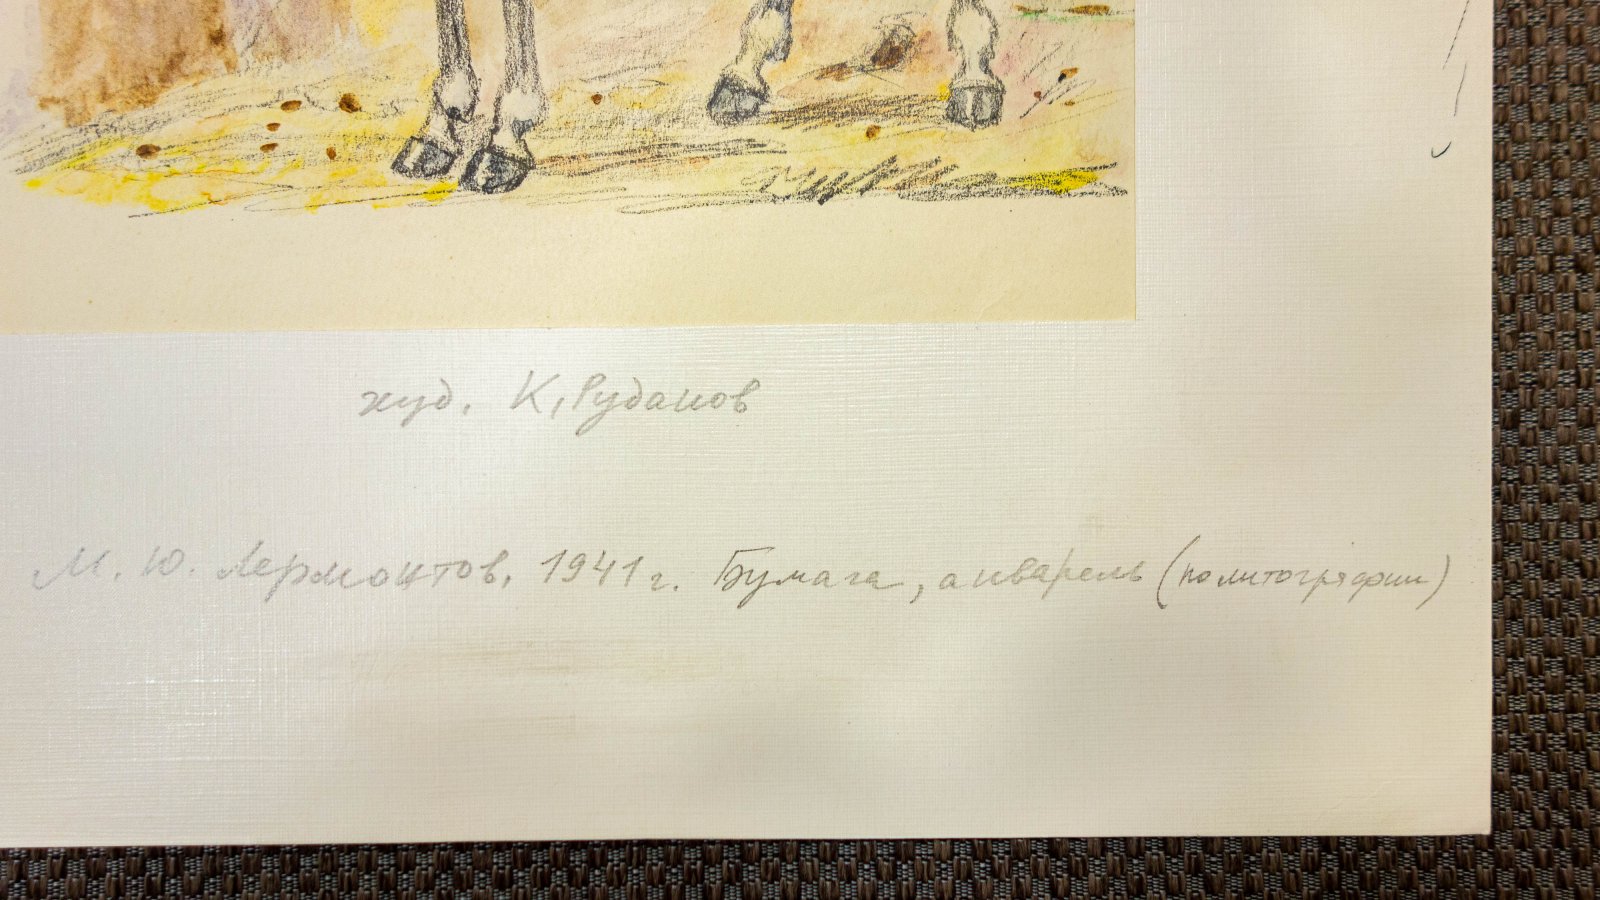 худ. К. Рудаков
М. Ю. Лермонтов. 1941 г. Бумага, акварель (по литографии)